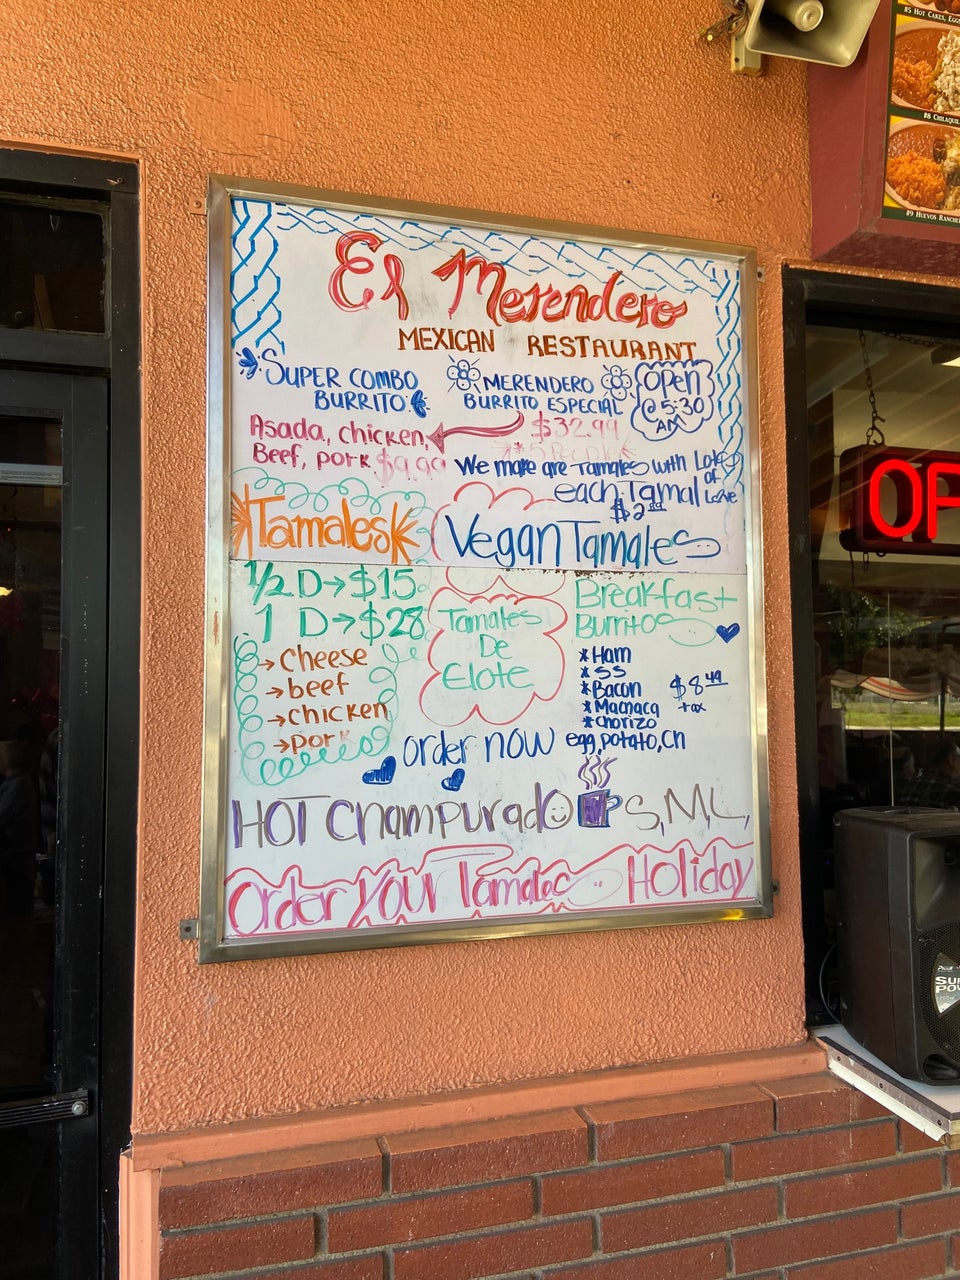 #5 HOT CAKES, EGG
#8 CHILAQUIL
#9 HUEVOS RANCHE
El Merendero
MEXICAN RESTAURANT
SUPER COMBO
BURRITO
MERENDERO
BURRITO ESPECIAL
Open
@ 5:30
AM
Asada, chicken,
Beef, pork $9.99
$32.99
*5 People*
We make are Tamales with Lots
of
Love
each Tamal
$2
Tamales
Vegan Tamales
1/2 D→$15
1 D→$28
→ cheese
→ beef
→ chicken
→ pork
Tamales
De
Elote
Breakfast
Burritos
*Ham
*SS
*Bacon
*Macnaca
*Chorizo
egg, potato, cn
$8.49
+ax
order now
HOT Champurado S, M, L,
Order Your Tamales Holiday
OP
SU
POW